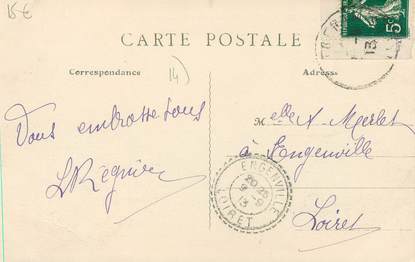 15€
CARTE POSTALE
Correspondance
14)
Adresse
5c
13
Vous embrasse tous
L Régnier
Melle X. Merlet
à Engenville
Loiret
ENGENVILLE
20 25
9 - 9
13
LOIRET